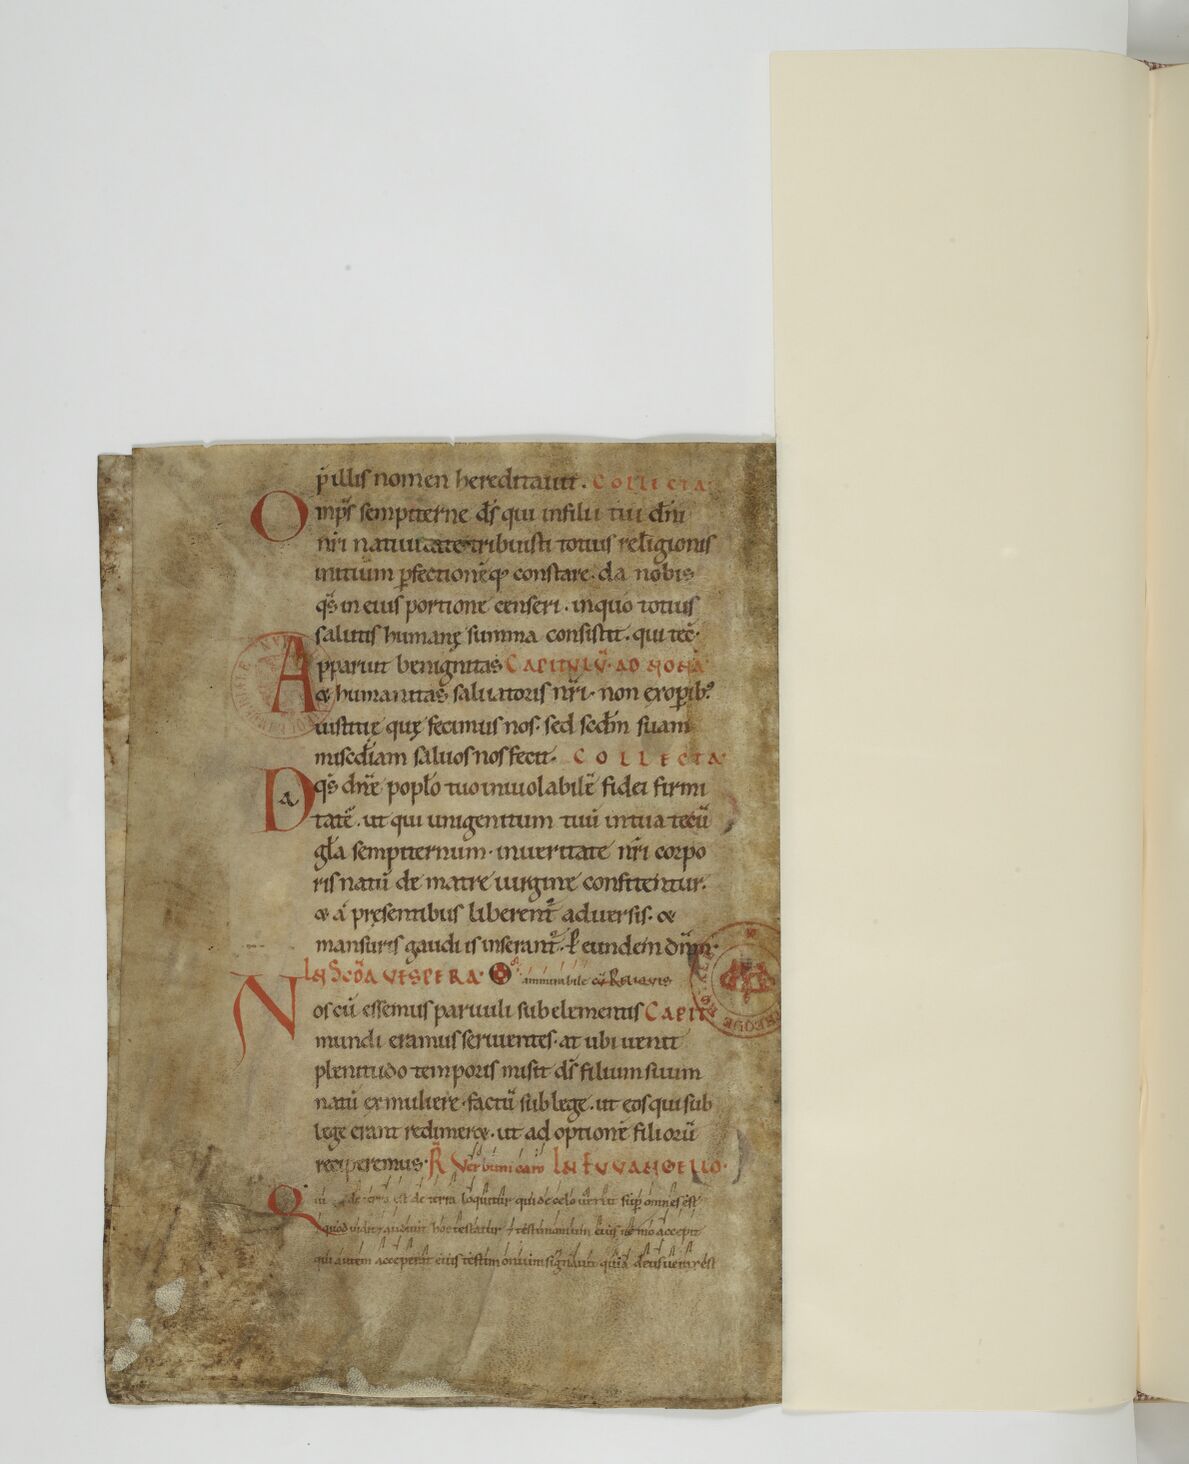 p̃ illis nomen hereditauit. COLLECTA
Omp̃s sempiterne d̃s qui in filii tui dñi
nr̃i natiuitate tribuisti totius religionis
initium ꝑfectionẽq; constare. da nobis
qs̃ in eius portione censeri. in quo totius
salutis humanę summa consistit. qui tec̃.
Apparuit benignitas CAPITULŨ AD NONÃ
& humanitas saluatoris nr̃i. non ex oꝑib;
iustitię quę fecimus nos. sed scdm̃ suam
misc̃diam saluos nos fecit. COLLECTA
Da qs̃ dñe poplo tuo inuiolabilẽ fidei firmi
tatẽ. ut qui unigenitum tuũ in tua tecũ
gl̃a sempiternum. in ueritate nr̃i corpo
ris natũ de matre uirgine confitentur.
& a pręsentibus liberent̃ aduersis. &
mansuris gaudiis inserant̃. P eundem dñm.
IN SCÕA VESPERA. O ammirabile cũ RELIQUIS
Nos cũ essemus paruuli sub elementis CAPIT
mundi eramus seruientes. at ubi uenit
plenitudo temporis misit d̃s filium suum
natũ ex muliere. factũ sub lege. ut eos qui sub
lege erant redimeret. ut adoptionẽ filiorũ
reciperemus. R̃ Verbum caro IN EVVANGELIO.
Qui de terra est de terra loquitur qui de celo uenit suꝑ omnes est
& quod uidit & audiuit hoc testatur & testimonium eius nemo accepit
qui autem acceperit eius testimonium signauit quia deus uerax est